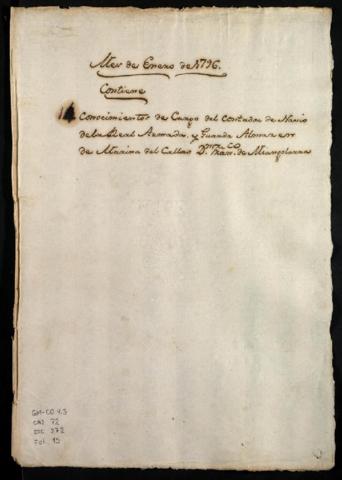 Mes de Enero de 1796.
Contiene
14 Conocimientos de Cargo del Contador de Navio
de la Real Armada, y Guarda Almazen
de Marina del Callao Dn. Franco. de
GM-CO 4.3
CAJ 72
DOC 372
Fol. 15